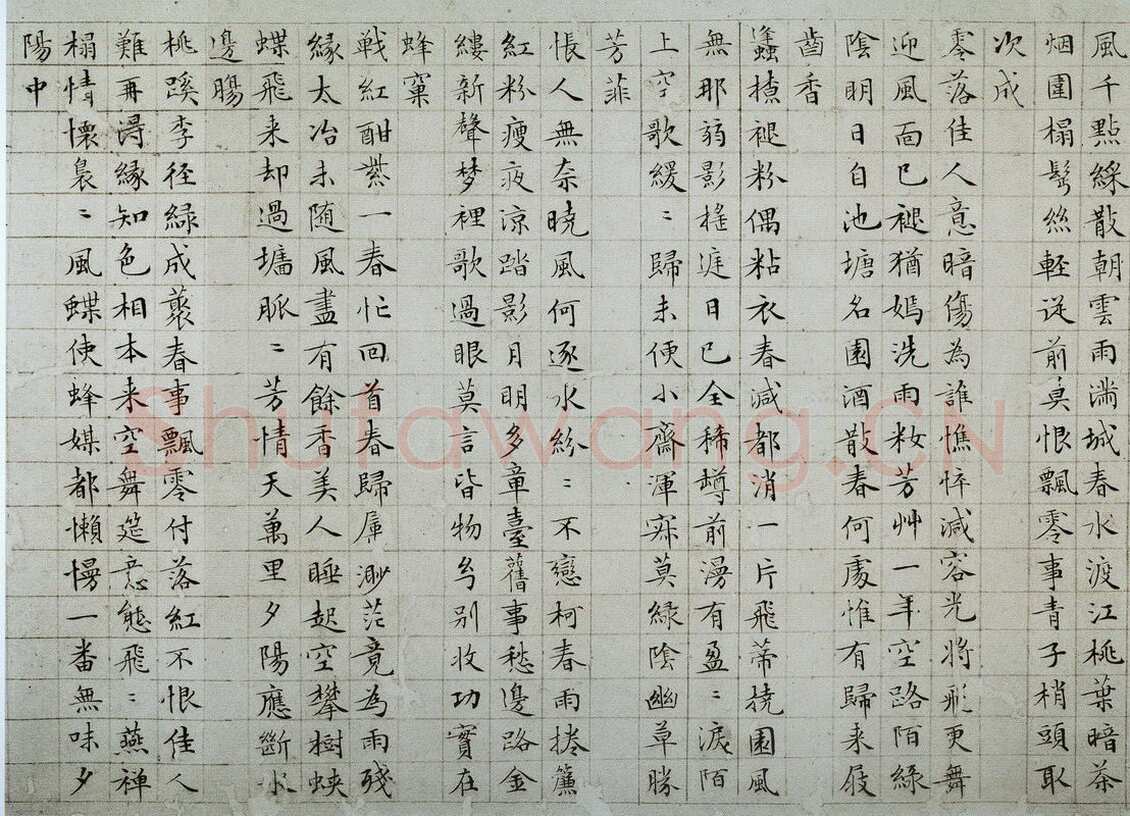 風千點綵散朝雲雨滿城春水渡江桃葉暗茶
烟圍榻鬓絲軽從前莫恨飄零事青子梢頭取
次成
零落佳人意暗傷為誰憔悴減容光將飛更舞
迎風面已褪猶嫣洗雨妝芳艸一年空路陌緑
陰明日自池塘名園酒散春何處惟有歸来屐
齒香
褪粉偶粘衣春減都消一片飛蒂撓園風
無那弱影搖庭日已全稀罇前漫有盈〻淚陌
上空歌緩〻歸未便小齋渾寂莫緑陰幽草勝
芳菲
悵人無奈曉風何逐水紛〻不戀柯春雨捲簾
紅粉瘦夜涼踏影月明多章臺舊事愁邊路金
縷新聲梦裡歌過眼莫言皆物别收功實在
蜂窠
戦紅酣紫一春忙回首春歸屬渺茫竟為雨殘
縁太冶未随風盡有餘香美人睡起空攀樹蛺
蝶飛来却過墻脈〻芳情天萬里夕陽應斷水
邊腸
桃蹊李徑緑成叢春事飄零付落紅不恨佳人
難再得縁知色相本来空舞筵意態飛〻燕禅
榻情懷裊〻風蝶使蜂媒都懶慢一番無味夕
陽中
Shufawang.CN